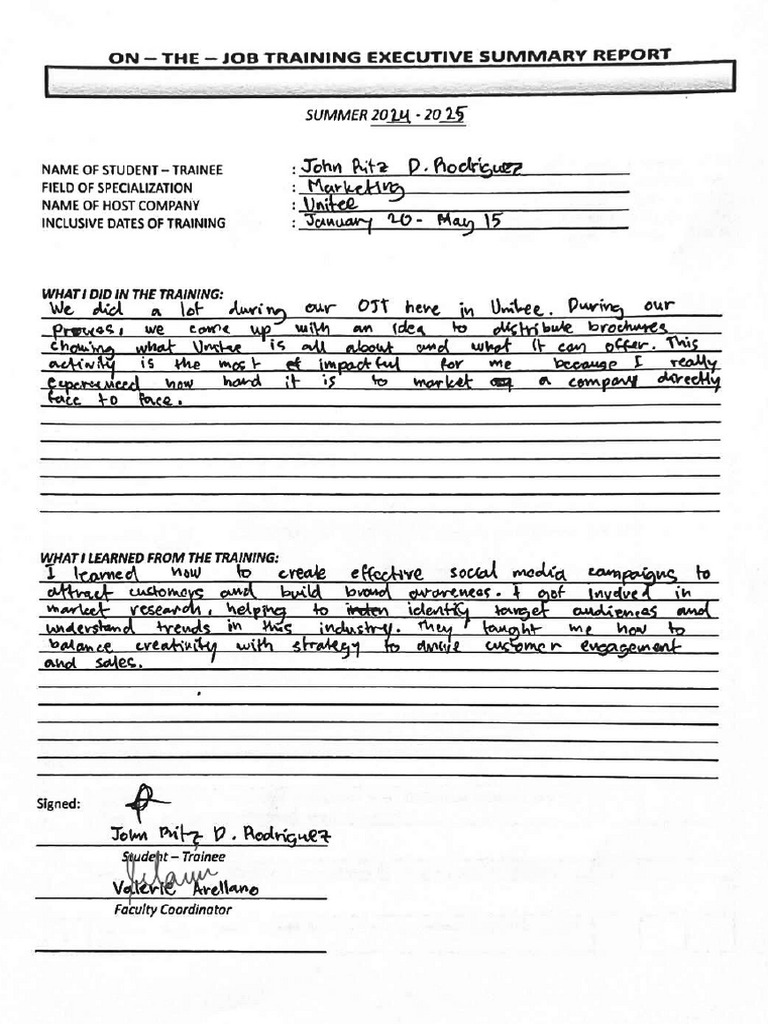 ON – THE – JOB TRAINING EXECUTIVE SUMMARY REPORT
SUMMER 2024 - 2025
NAME OF STUDENT – TRAINEE : John Ritz D. Rodriguez
FIELD OF SPECIALIZATION : Marketing
NAME OF HOST COMPANY : Unitee
INCLUSIVE DATES OF TRAINING : January 20 - May 15
WHAT I DID IN THE TRAINING:
We did a lot during our OJT here in Unitee. During our
process, we come up with an idea to distribute brochures
showing what Unitee is all about and what it can offer. This
activity is the most impactful for me because I really
experienced how hard it is to market a company directly
face to face.
WHAT I LEARNED FROM THE TRAINING:
I learned how to create effective social media campaigns to
attract customers and build brand awareness. I got involved in
market research, helping to identify target audiences and
understand trends in this industry. They taught me how to
balance creativity with strategy to drive customer engagement
and sales.
Signed:
John Ritz D. Rodriguez
Student – Trainee
Valerie Arellano
Faculty Coordinator